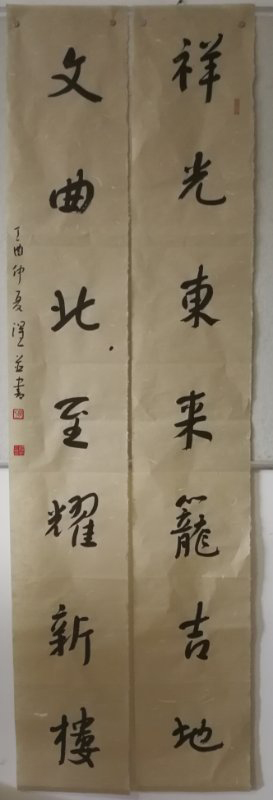 祥光東来籠吉地
文曲北至耀新樓
丁酉仲夏
書